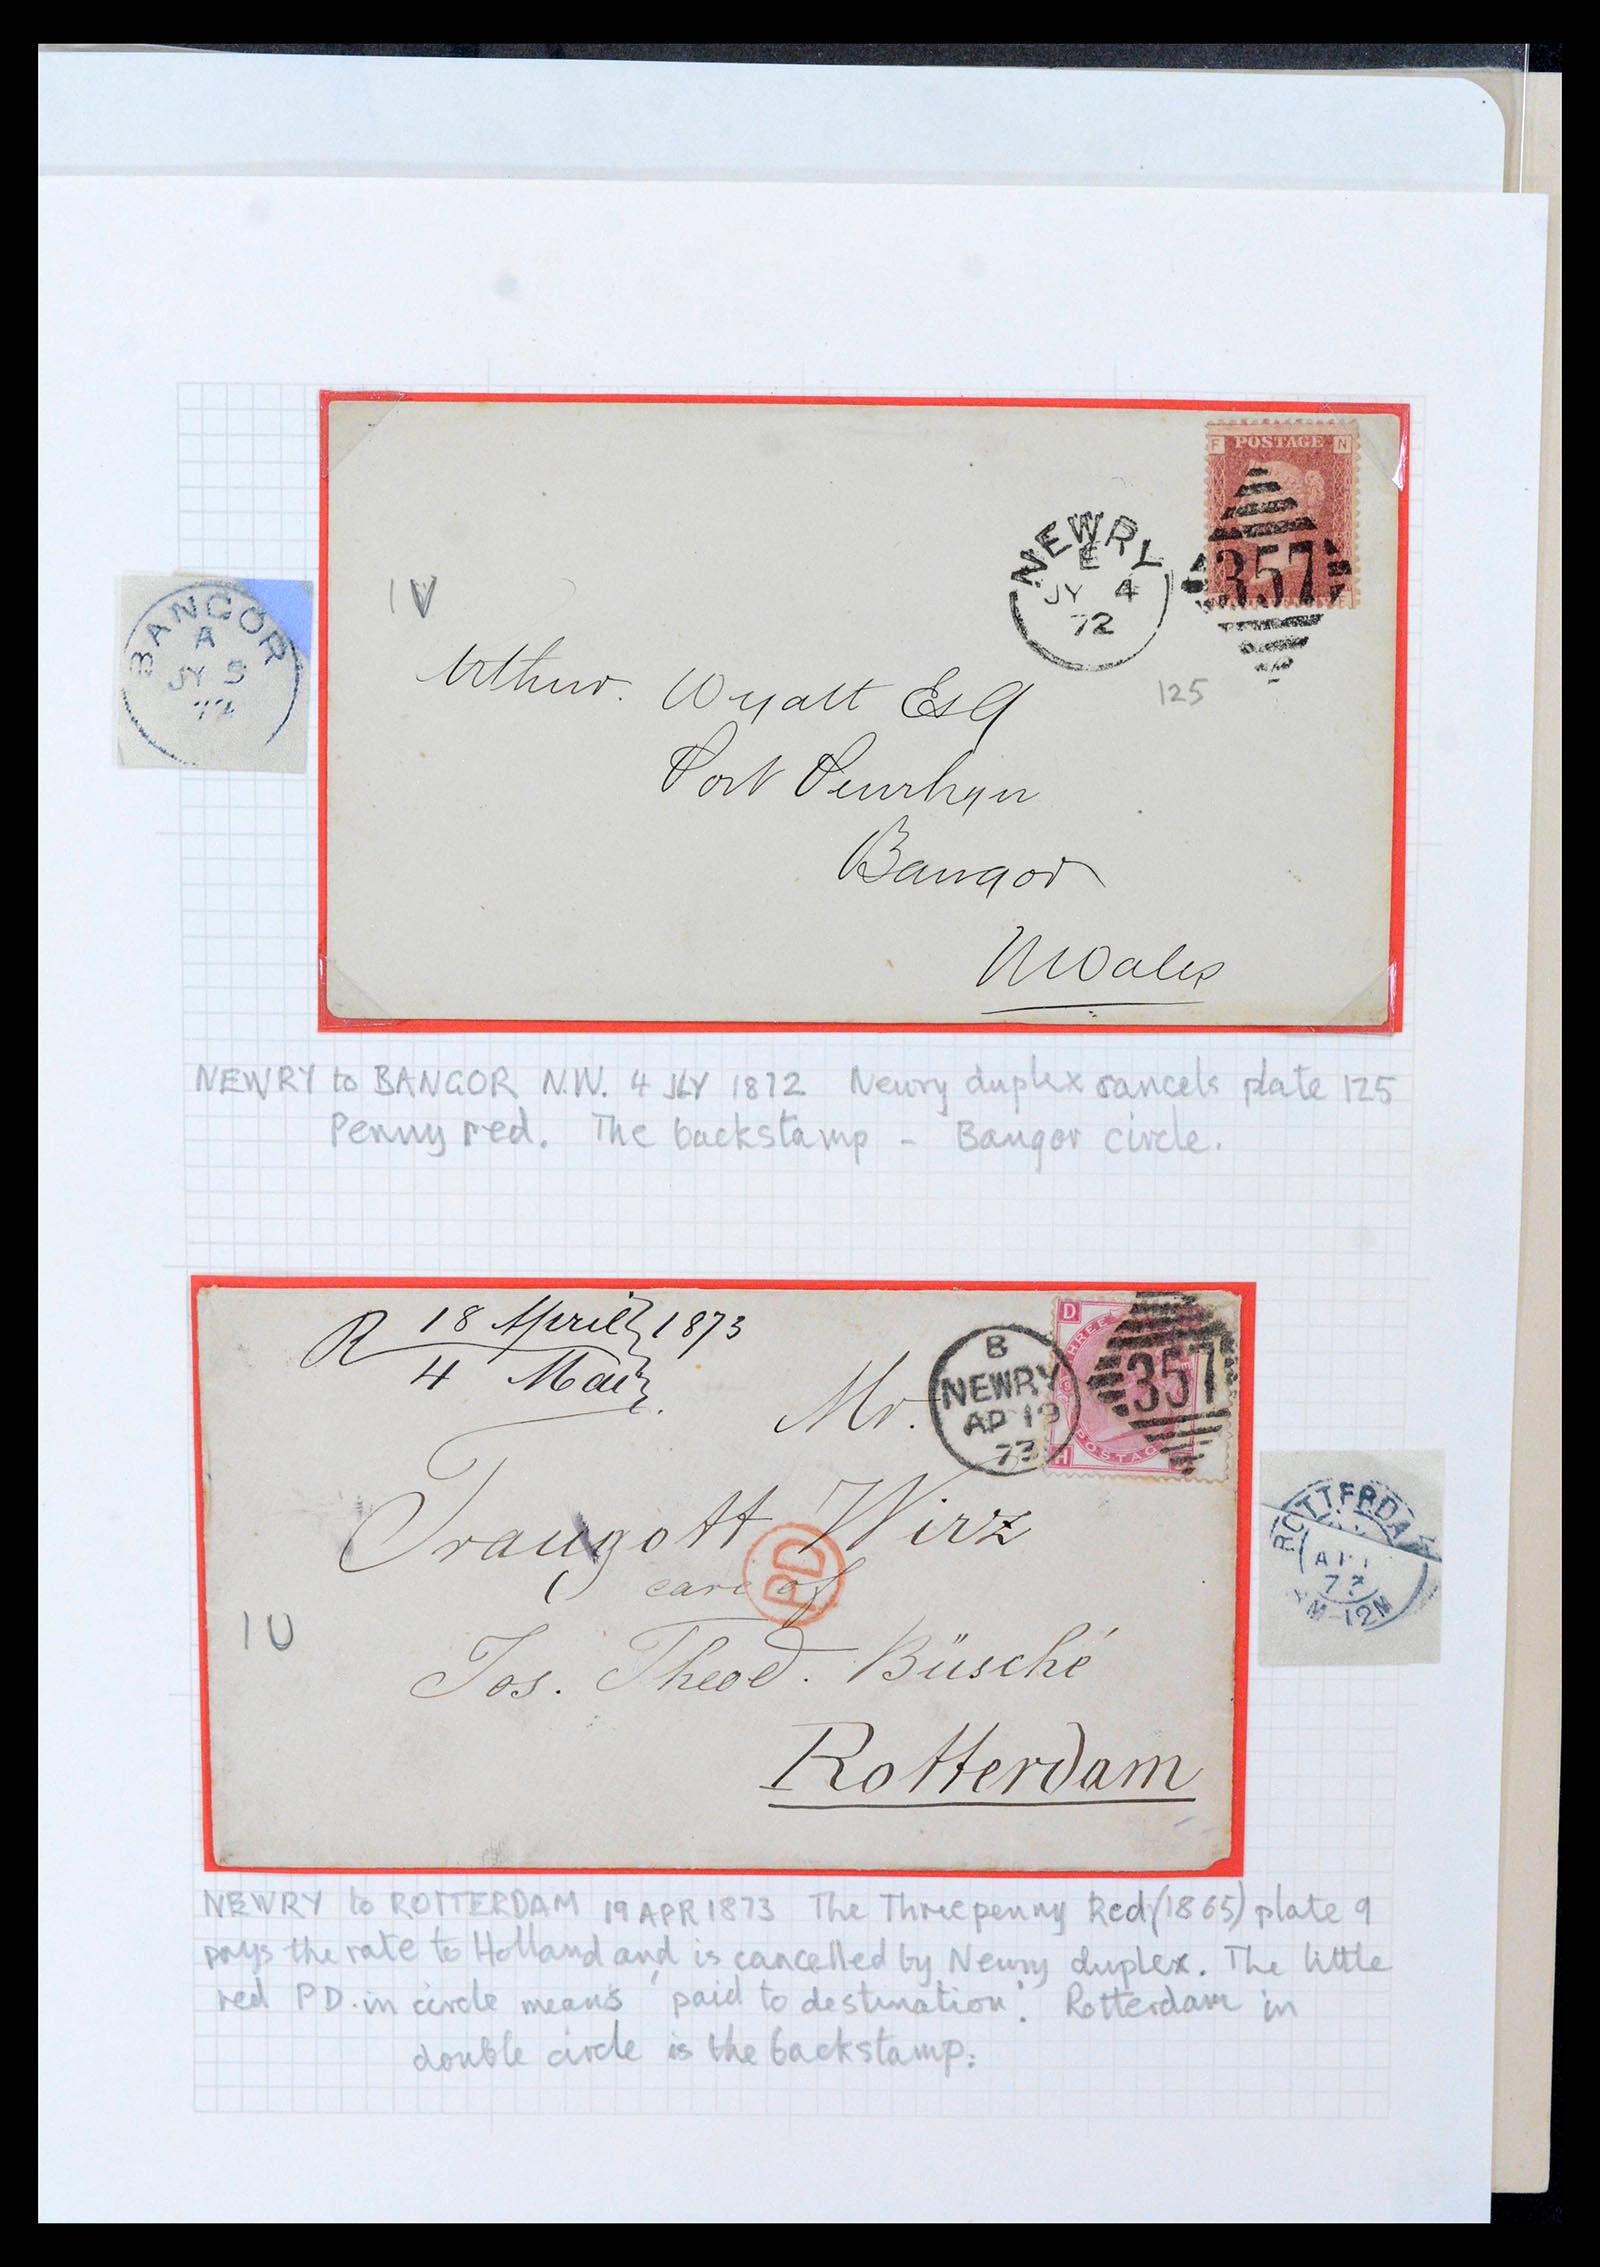 F POSTAGE N
NEWRY
E
JY 4
72
357
1V
BANGOR
A
JY 5
72
Arthur. Wyatt Esq
125
Port Penrhyn
Bangor
N Wales
NEWRY to BANGOR N.W. 4 JLY 1872 Newry duplex cancels plate 125
Penny red. The backstamp - Bangor circle.
R 18 April 1873
4 Mai
D THREE
H POSTAG
B
NEWRY
AP 19
73
357
Mr.
Traugott Wirz
PD
care of
1U
Jos. Theod. Büsché
Rotterdam
ROTTERDAM
AP
73
M-12M
NEWRY to ROTTERDAM 19 APR 1873 The Threepenny Red (1865) plate 9
pays the rate to Holland and is cancelled by Newry duplex. The little
red PD in circle means 'paid to destination'. Rotterdam in
double circle is the backstamp.